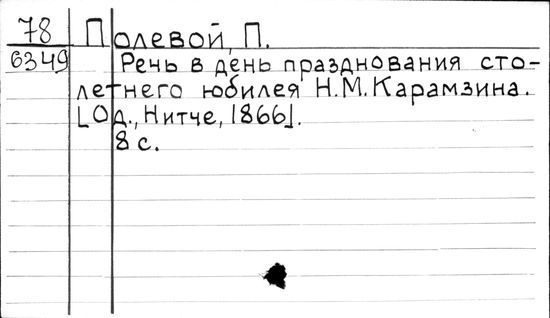 78 Полевой, П.
6349 Речь в день празднования сто-
летнего юбилея Н.М.Карамзина.
[Од., Нитче, 1866].
8 с.